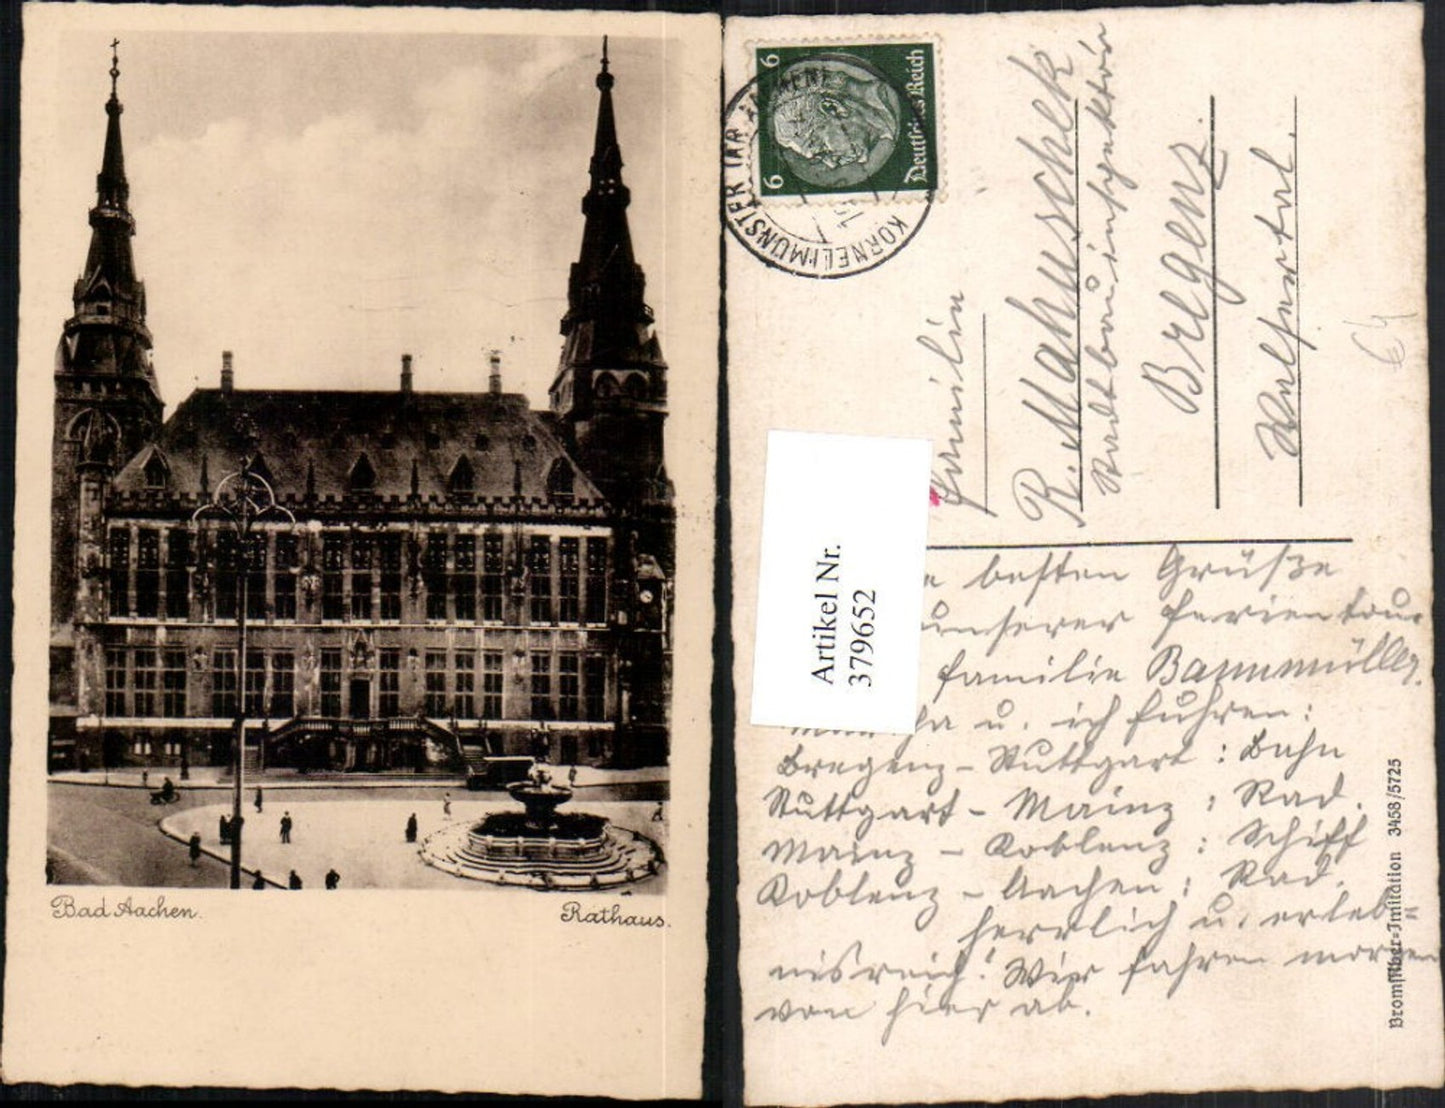 Bad Aachen.
Rathaus.
6
6
Deutsches Reich
KORNELIMÜNSTER
Artikel Nr.
379652
Familie
R. Mahuschek
Stadtbauinspektor
Bregenz.
Vorkloster
besten Grüße
unserer Ferientour
Familie Bammüller.
u. ich fuhren:
Bregenz - Stuttgart : Bahn
Stuttgart - Mainz : Rad.
Mainz - Koblenz : Schiff
Koblenz - Aachen : Rad.
herrlich u. erleb=
nisreich! Wir fahren morgen
von hier ab.
Bromsilber=Imitation 3458/5725